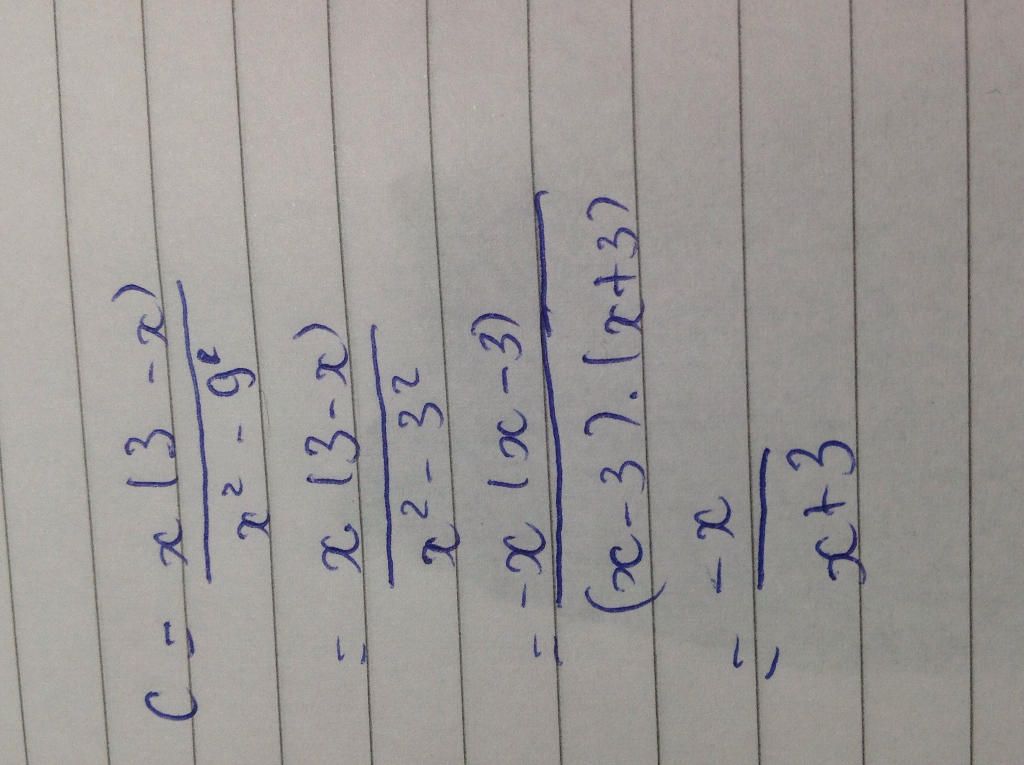 C = x(3-x) / x² - 9
= x(3-x) / x² - 3²
= -x(x-3) / (x-3).(x+3)
= -x / x+3